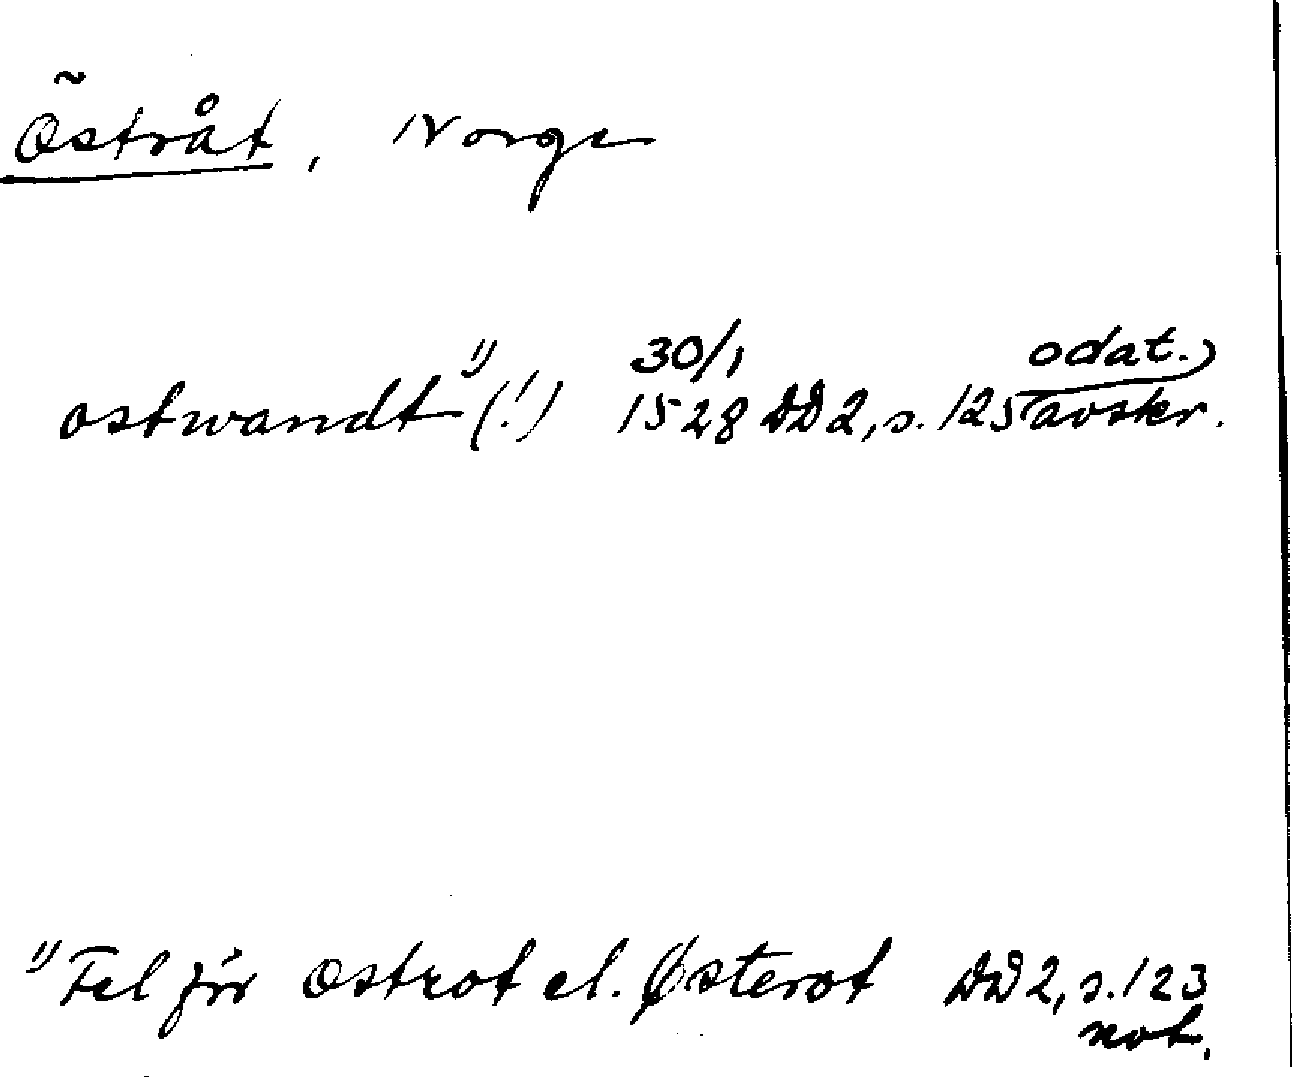 Östråt, Norge
30/1 odat.
ostwandt 1) (!) 1528 DD2, s. 125 avskr.
1) Fel för Ostrot el. Østerot DD2, s. 123
not.